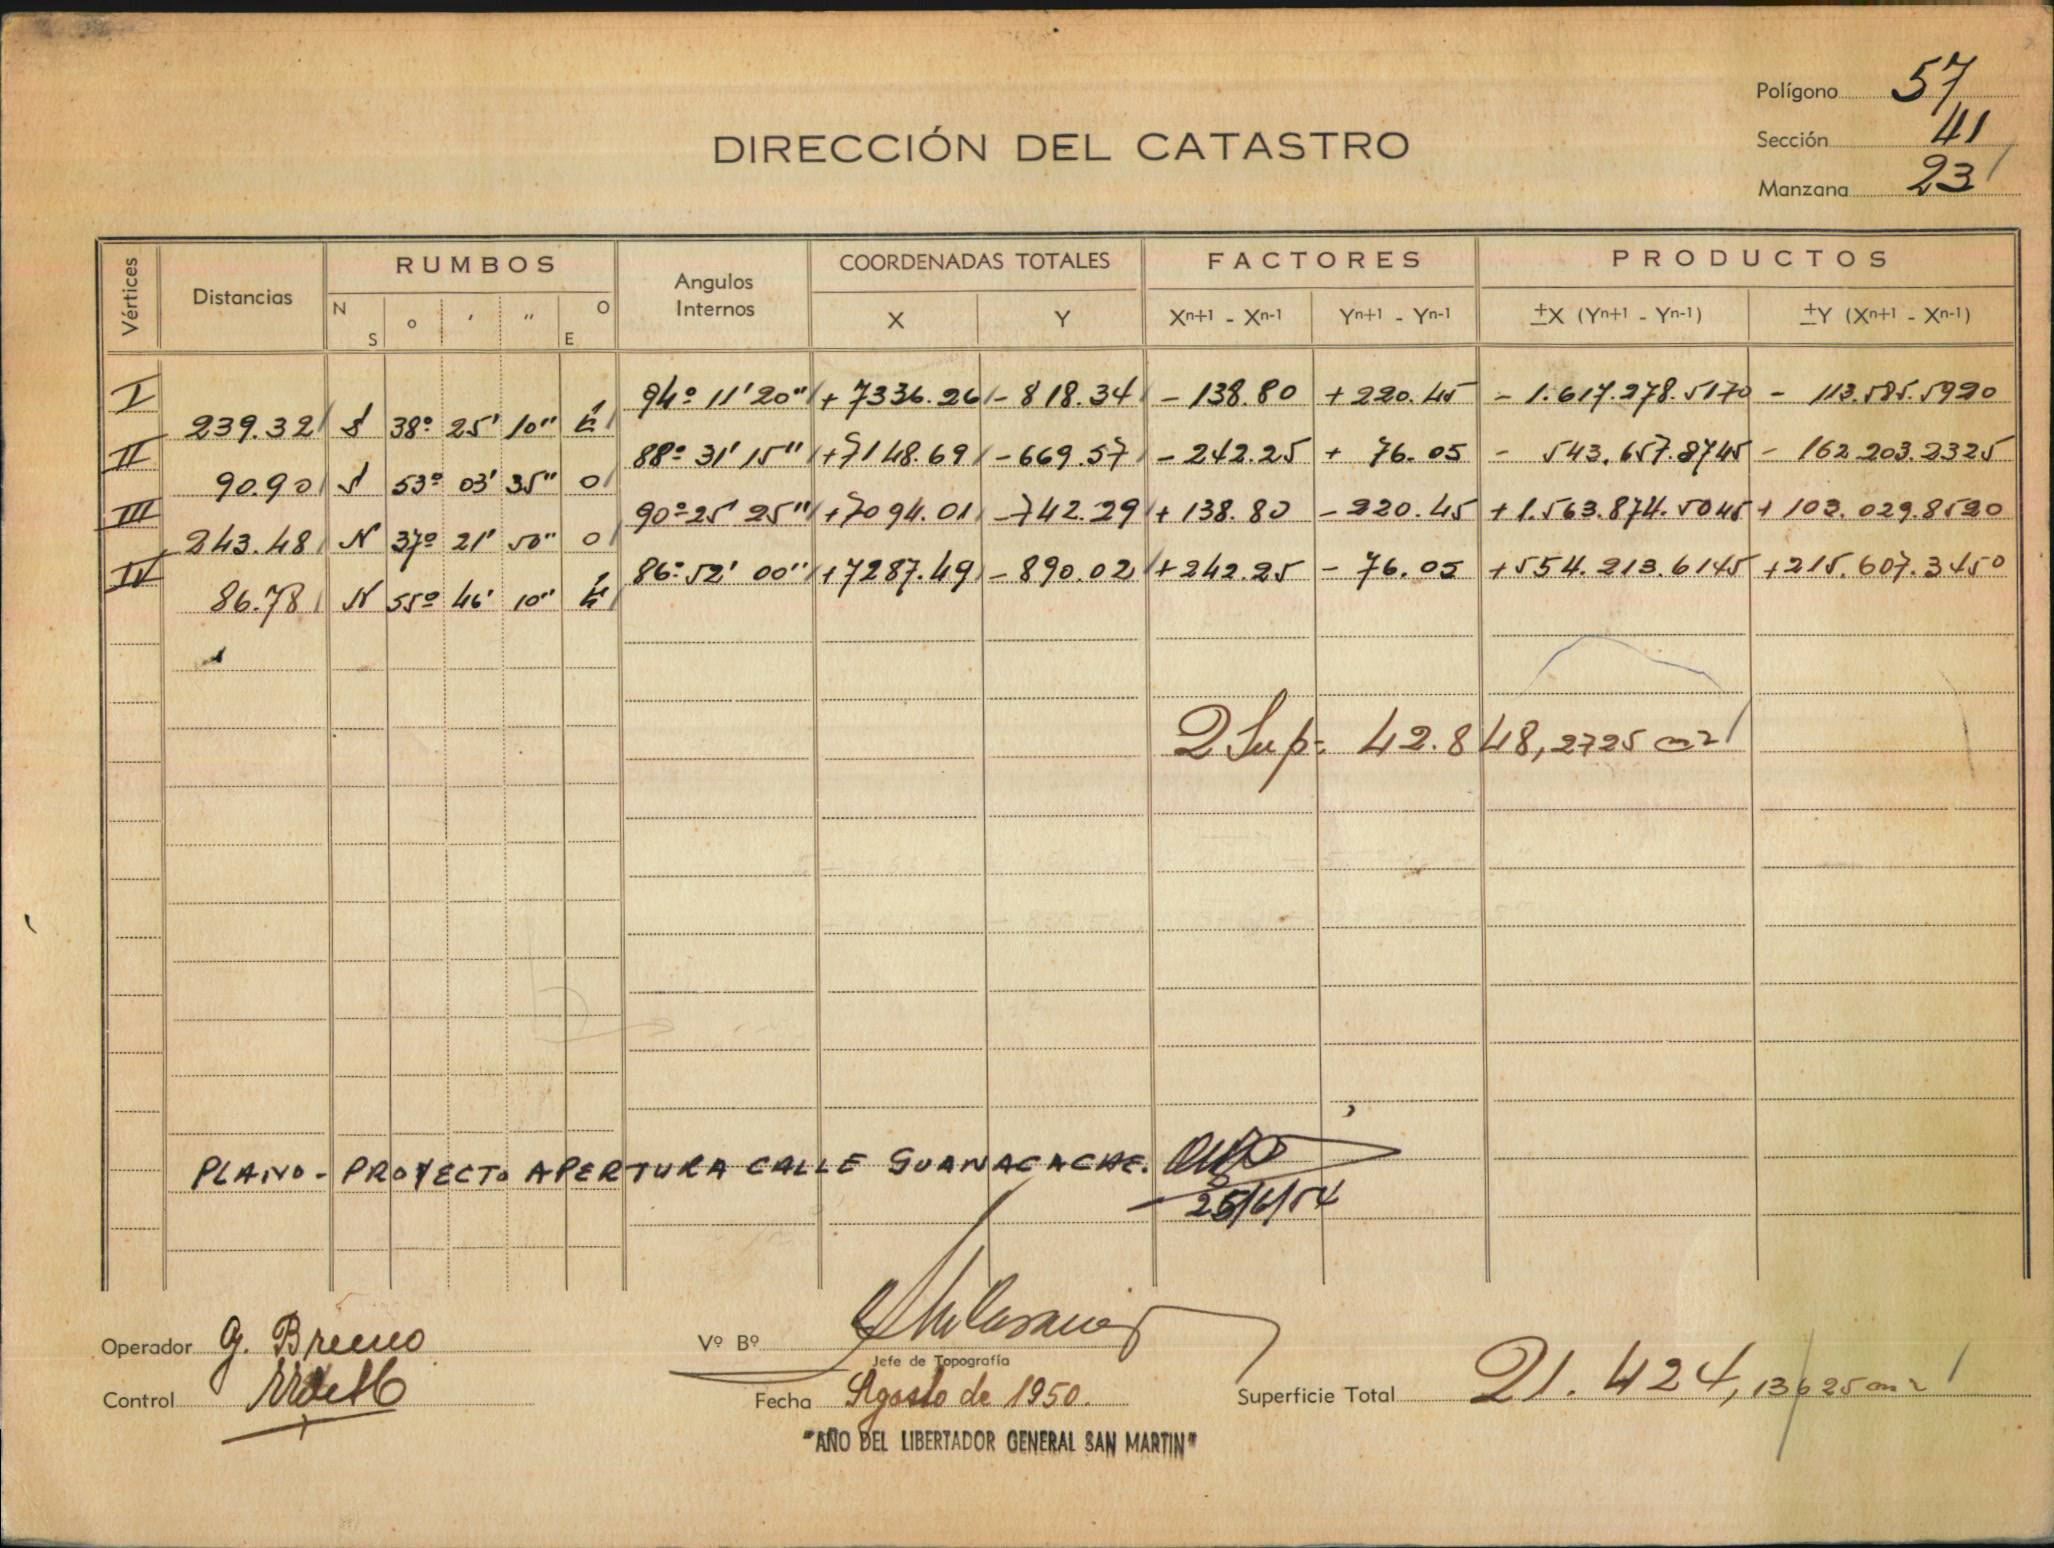 Polígono 57
Sección 41
Manzana 23
DIRECCIÓN DEL CATASTRO
Vértices Distancias RUMBOS Angulos Internos COORDENADAS TOTALES FACTORES PRODUCTOS
N S o ' " O E X Y Xn+1 - Xn-1 Yn+1 - Yn-1 ±X (Yn+1 - Yn-1) ±Y (Xn+1 - Xn-1)
I 94º 11' 20" + 7336.26 - 818.34 - 138.80 + 220.45 - 1.617.278.5170 - 113.585.5920
239.32 S 38º 25' 10" E
II 88º 31' 15" +7148.69 - 669.57 - 242.25 + 76.05 - 543.657.8745 - 162.203.2325
90.90 S 53º 03' 35" O
III 90º 25' 25" +7094.01 - 742.29 + 138.80 - 220.45 + 1.563.874.5045 + 103.029.8520
243.48 N 37º 21' 50" O
IV 86º 52' 00" +7287.49 - 890.02 + 242.25 - 76.05 + 554.213.6145 + 215.607.3450
86.78 N 55º 46' 10" E
2 Sup= 42.848,2725 m2
PLANO - PROYECTO APERTURA CALLE GUANACACHE.
25/6/54
Operador G. Bruno
Vº Bº
Jefe de Topografía
Control
Fecha Agosto de 1950.
Superficie Total 21.424,13625 m2
"AÑO DEL LIBERTADOR GENERAL SAN MARTIN"